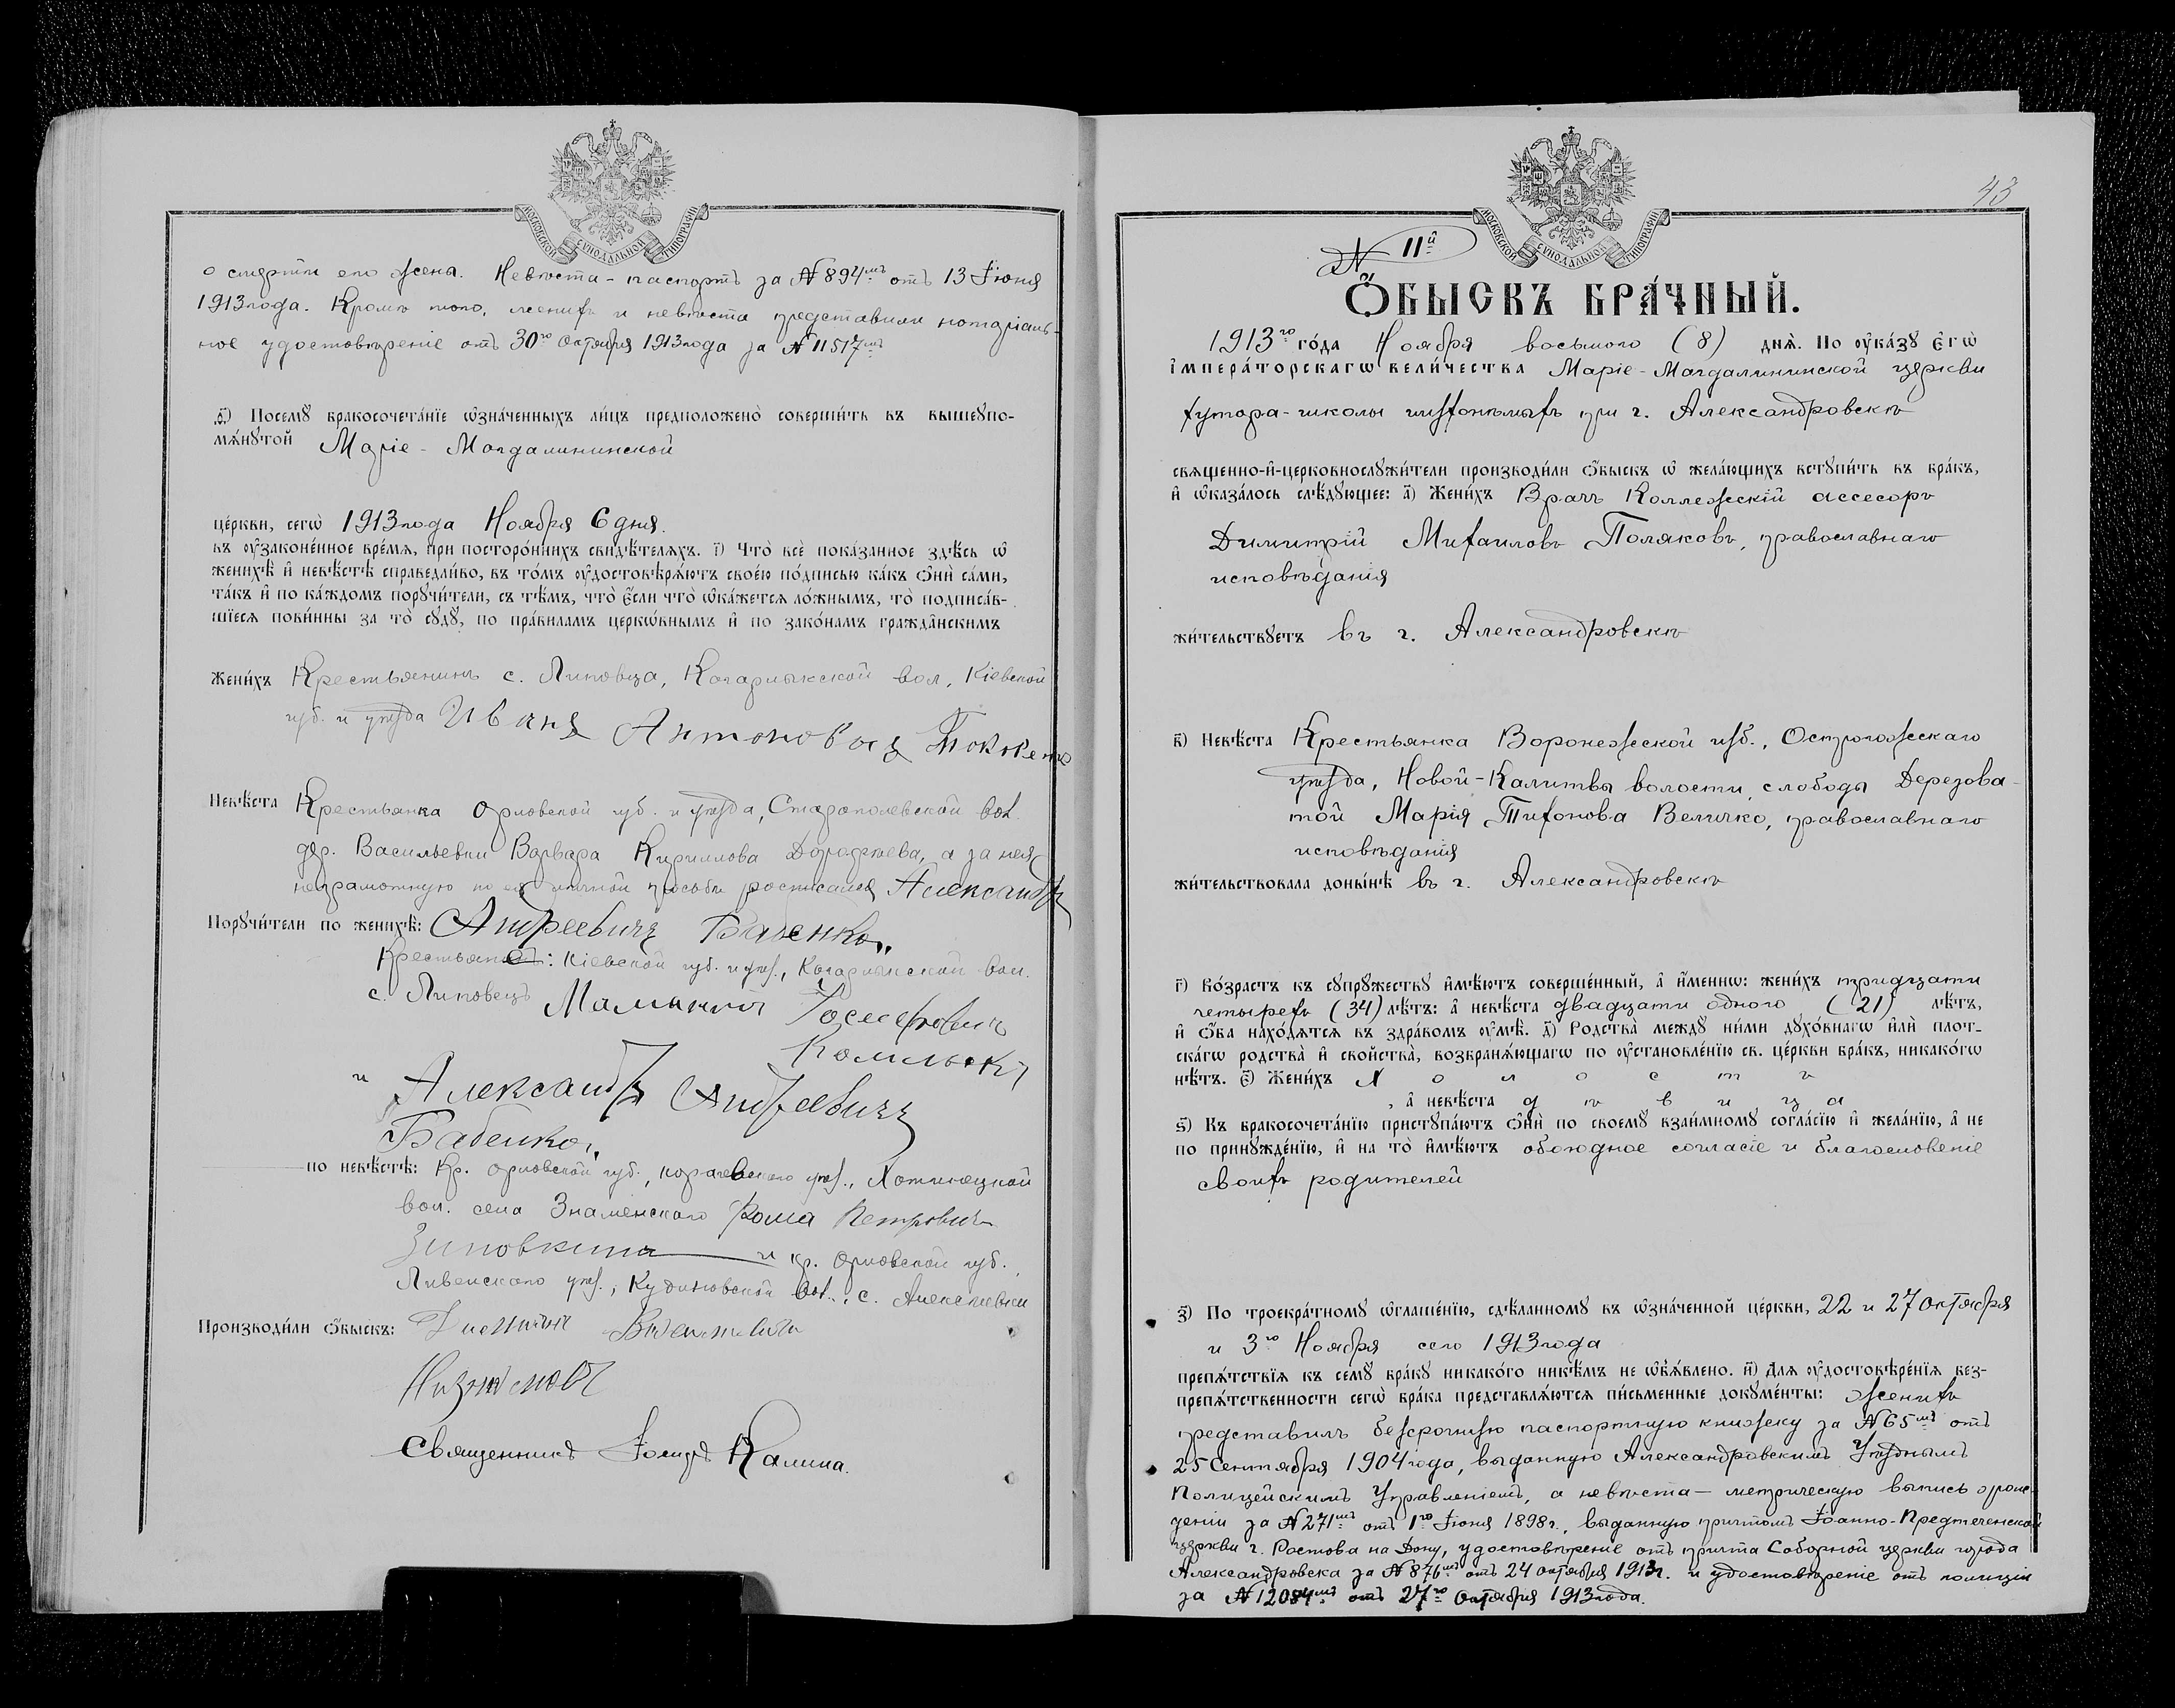 МОСКОВСКОЙ СѴНОДАЛЬНОЙ ТИПОГРАФІИ
о смерти его жены. Невѣста - паспортъ за № 894мъ отъ 13 Іюня
1913 года. Кромѣ того, женихъ и невѣста представили нотаріаль-
ное удостовѣреніе отъ 30го Октября 1913 года за № 11517мъ
ѳ҃) Посемꙋ бракосочета́нїе ѡ҆зна́ченныхъ ли́цъ предположено̀ соверши́ть въ вышеупо-
мѧ́нꙋтой Маріе - Магдалининской
це́ркви, сегѡ̀ 1913 года Ноября 6 дня.
въ ᲂу҆законе́нное вре́мѧ, при посторо́ннихъ свидѣ́телѧхъ. і҃) Что̀ всѐ пока́занное здѣ́сь ѡ҆
женихѣ̀ и҆ невѣ́стѣ справедли́во, въ то́мъ ᲂу҆достовѣрѧ́ютъ свое́ю по́дписью ка́къ ѻ҆нѝ са́ми,
та́къ и҆ по ка́ждомъ порꙋчи́тели, съ тѣ́мъ, что̀ є҆́сли что̀ ѡ҆ка́жетсѧ ло́жнымъ, то̀ подписа́в-
шїесѧ пови́нны за то̀ сꙋдꙋ̀, по пра́виламъ церкѡ́внымъ и҆ по зако́намъ гражда̂нскимъ
Жени́хъ Крестьянинъ с. Липовца, Кагарлыкской вол., Кіевской
губ. и уѣзда Иванъ Антоновъ
Невѣ́ста Крестьянка Орловской губ. и уѣзда, вол.
дер. Васильевки Варвара Кириллова Дорофѣева, а за нея
неграмотную по ея личной просьбѣ росписался Александръ
Порꙋчи́тели по женихѣ̀: Андреевичъ Бабенко
Крестьяне: Кіевской губ. и уѣз., Кагарлыкской вол.
с. Липовецъ
и Александръ Андреевичъ
Бабенко
по невѣ́стѣ: Кр. Орловской губ., Карачевскаго уѣз., Хотинецкой
вол. села Знаменскаго Фома Петровичъ
и кр. Орловской губ.
Ливенскаго уѣз., вол., с. Алексѣевки
Производи́ли ѻ҆́быскъ:
Священникъ Калина.
43
МОСКОВСКОЙ СѴНОДАЛЬНОЙ ТИПОГРАФІИ
№ 11й
Ѻ҆БЫСКЪ БРА́ЧНЫЙ.
1913го го́да Ноября восьмого (8) днѧ̀. По ᲂу҆ка́зꙋ Є҆гѡ̀
И҆мпера́торскагѡ вели́чества Маріе - Магдалининской церкви
хутора-школы при г. Александровскѣ
свѧще́нно-и҆-церковнослꙋжи́тели производи́ли ѻ҆́быскъ ѡ҆ жела́ющихъ встꙋпи́ть въ бра́къ,
и҆ ѡ҆каза́лось слѣ́дꙋющее: а҃) Жени́хъ Врачъ Коллежскій ассесоръ
Димитрій Михаиловъ Поляковъ, православнаго
исповѣданія
жи́тельствꙋетъ въ г. Александровскѣ
в҃) Невѣ́ста Крестьянка Воронежской губ., Острогожскаго
уѣзда, Новой-Калитвы волости, слободы Дерезова-
той Марія Тихонова Величко, православнаго
исповѣданія
жи́тельствовала доны́нѣ въ г. Александровскѣ
г҃) Во́зрастъ къ сꙋпрꙋ́жествꙋ и҆мѣ́ютъ соверше́нный, а҆ и҆́меннѡ: жени́хъ тридцати
четырехъ (34) лѣ́тъ: а҆ невѣ́ста двадцати одного (21) лѣ́тъ,
и҆ ѻ҆́ба нахо́дѧтсѧ въ здра́вомъ ᲂу҆мѣ̀. д҃) Родства̀ междꙋ̀ ни́ми дꙋхо́внагѡ и҆лѝ плот-
ска́гѡ родства̀ и҆ свойства̀, возбранѧ́ющагѡ по ᲂу҆становле́нїю св. це́ркви бра́къ, никако́гѡ
нѣ́тъ. є҃) Жени́хъ Х о л о с т ъ
, а҆ невѣ́ста д ѣ в и ц а
ѕ҃) Къ бракосочета́нїю пристꙋпа́ютъ ѻ҆нѝ по своемꙋ̀ взаи́мномꙋ согла́сїю и҆ жела́нїю, а҆ не
по принꙋжде́нїю, и҆ на то̀ и҆мѣ́ютъ обоюдное согласіе и благословеніе
своихъ родителей
з҃) По троекра́тномꙋ ѡ҆глаше́нїю, сдѣ́ланномꙋ въ ѡ҆зна́ченной це́ркви, 22 и 27 Октября
и 3го Ноября сего 1913 года
препѧ́тствїѧ къ семꙋ̀ бра́кꙋ никако́го никѣ́мъ не ѡ҆бъѧ́влено. и҃) Длѧ ᲂу҆достовѣре́нїѧ без-
препѧ́тственности сегѡ̀ бра́ка представлѧ́ютсѧ пи́сьменные докꙋме́нты: Женихъ
представилъ безсрочную паспортную книжку за № 65мъ отъ
25 Сентября 1904 года, выданную Александровскимъ Уѣзднымъ
Полицейскимъ Управленіемъ, а невѣста - метрическую выпись о рож-
деніи за № 271мъ отъ 1го Іюня 1898 г., выданную причтомъ Іоанно-Предтеченской
церкви г. Ростова на Дону, удостовѣреніе отъ причта Соборной церкви города
Александровска за № 876мъ отъ 24 Октября 1913 г. и удостовѣреніе отъ полиціи
за № 12084мъ отъ 27го Октября 1913 года.